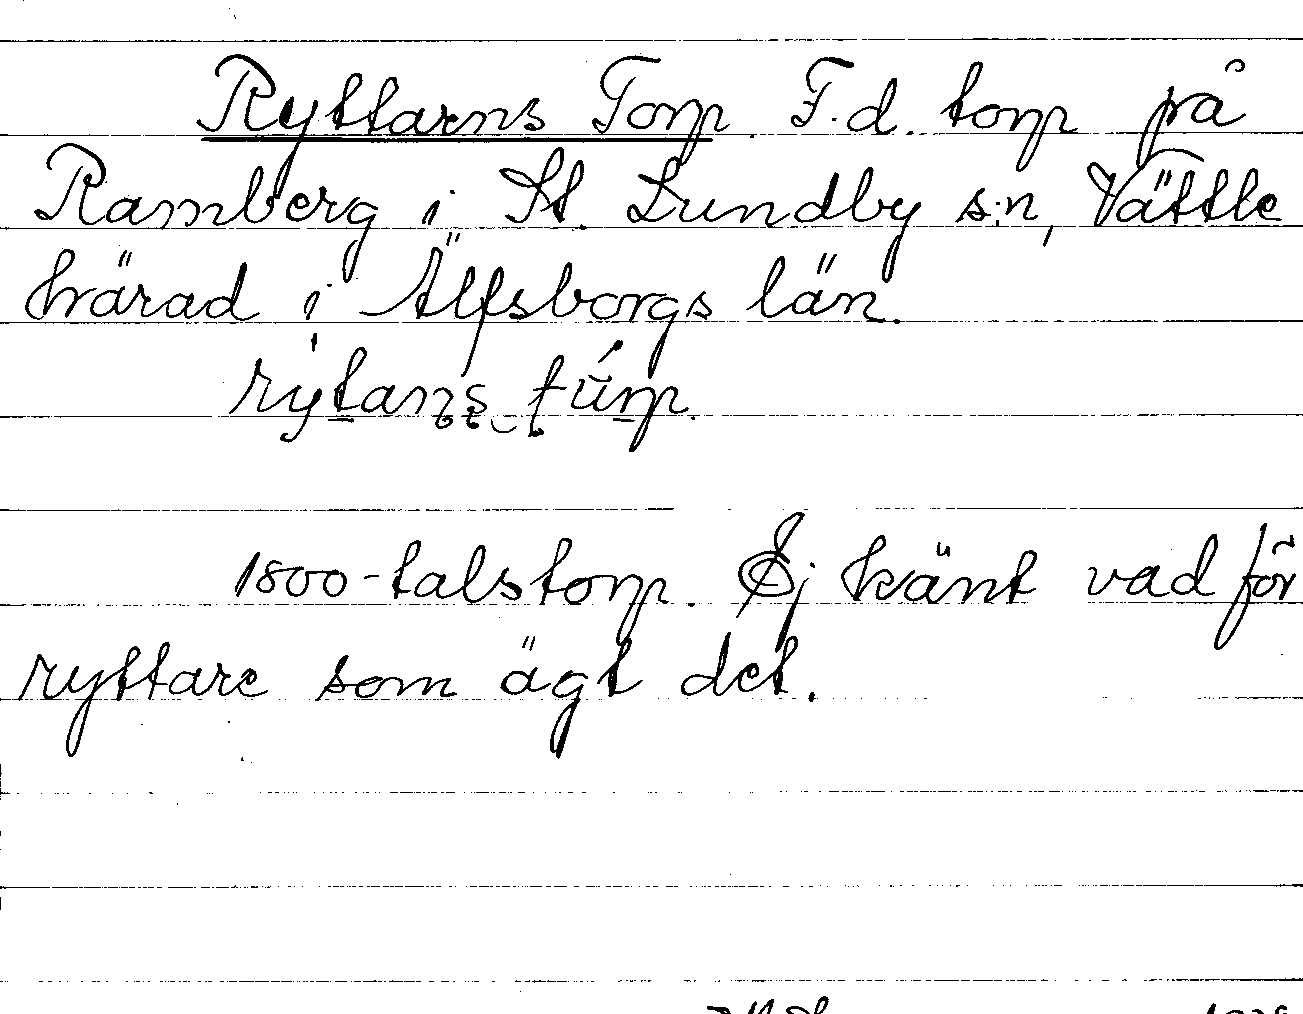 Ryttarns Torp. F.d. torp på
Ramberg i St. Lundby s:n, Vättle
härad i Älfsborgs län.
1800-talstorp. Ej känt vad för
ryttare som ägt det.